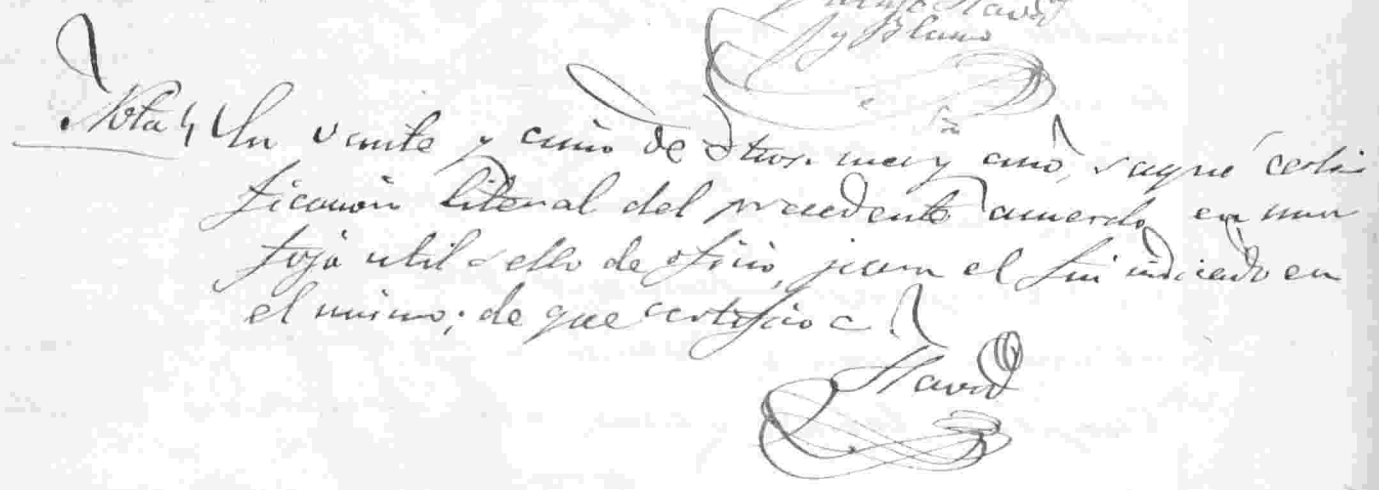 y Blanco
Nota En veinte y cinco de dhos. mes y año, saqué certi
ficacion literal del precedente acuerdo en una
foja util sello de oficio, para el fin indicado en
el mismo; de que certifico